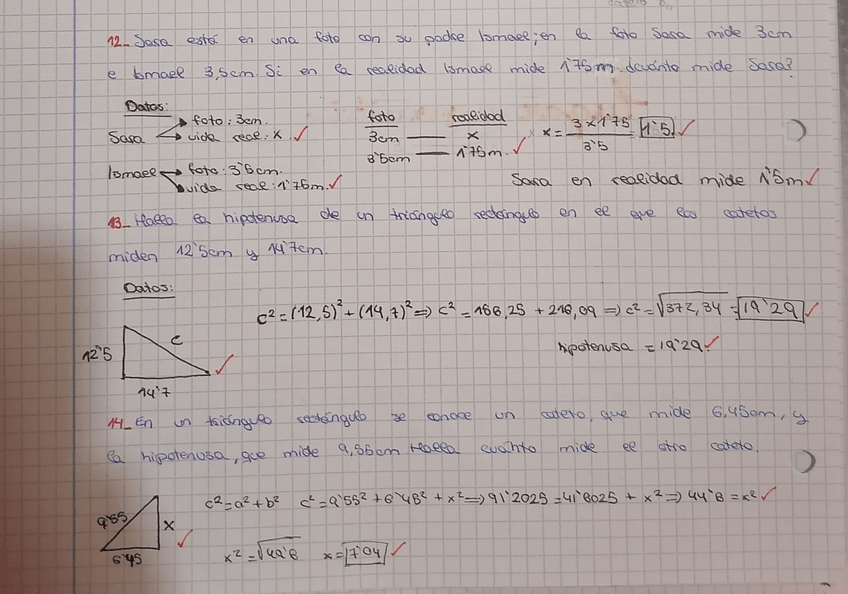 12_ Sara está en una foto con su padre Ismael; en la foto Sara mide 3cm
e Ismael 3,5cm. Si en la realidad Ismael mide 1'75m. ¿cuánto mide Sara?
Datos:
Sara foto: 3cm.
vida real: x.
Ismael foto: 3'5cm.
vida real: 1'75m.
foto realidad
3cm — x
3'5cm — 1'75m.
x = 3 x 1'75 / 3'5 = 1'5
Sara en realidad mide 1'5m
13_ Halla la hipotenusa de un triángulo rectángulo en el que los catetos
miden 12'5cm y 14'7cm.
Datos:
12'5
c
14'7
c² = (12,5)² + (14,7)² => c² = 156,25 + 216,09 => c² = √372,34 = 19'29
hipotenusa = 19'29.
14_ En un triángulo rectángulo se conoce un cateto, que mide 6,45cm, y
la hipotenusa, que mide 9,55cm Halla cuánto mide el otro cateto.
9'55
x
6'45
c² = a² + b² c² = 9'55² + 6'45² + x² => 91'2025 = 41'6025 + x² => 44'6 = x²
x² = √49'6 x = 7'04